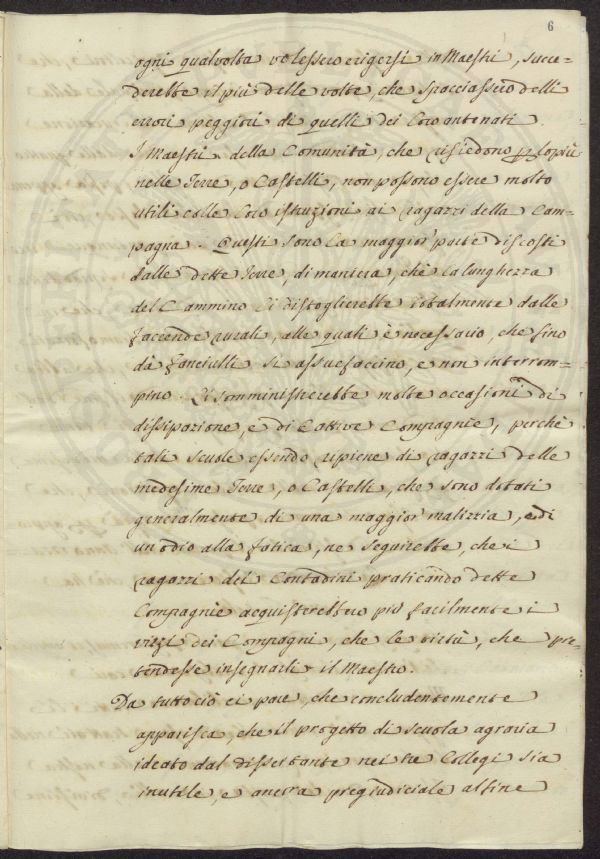 6
ogni qualvolta volessero erigersi in Maestri, succe=
derebbe il più delle volte, che spacciassero delli
errori peggiori di quelli dei loro antenati.
I Maestri della Comunità, che risiedono p lopiù
nelle Terre, o Castelli, non possono essere molto
utili colle loro istruzioni ai ragazzi della Cam=
pagna. Questi sono la maggior parte discosti
dalle dette Terre, di maniera, che la lunghezza
del Cammino li distoglierebbe totalmente dalle
faccende rurali, alle quali è necessario, che fino
da fanciulli si assuefaccino, e non interrom=
pino. Li somministrerebbe molte occasioni di
dissipazione, e di Cattive Compagnie, perchè
tali scuole essendo ripiene di ragazzi delle
medesime Terre, o Castelli, che sono dotati
generalmente di una maggior malizzia, e di
un odio alla fatica, ne seguirebbe, che i
ragazzi dei Contadini praticando dette
Compagnie acquisterebbero più facilmente i
vizzi dei Compagni, che le virtù, che pre=
tendesse insegnarli il Maestro.
Da tutto ciò ci pare, che concludentemente
apparisca, che il progetto di scuola agraria
ideato dal dissertante nei tre Collegi sia
inutile, e ancora pregiudiciale al fine